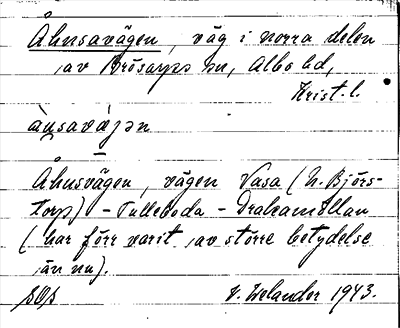 Åhusavägen, väg i norra delen
av Brösarps sn, Albo hd,
Krist. l.
àu̥savä̀jən
Åhusvägen, vägen Vasa (N. Björs-
torp) – Tulleboda – Drakamöllan
(har förr varit av större betydelse
än nu).
V. Welander 1943.